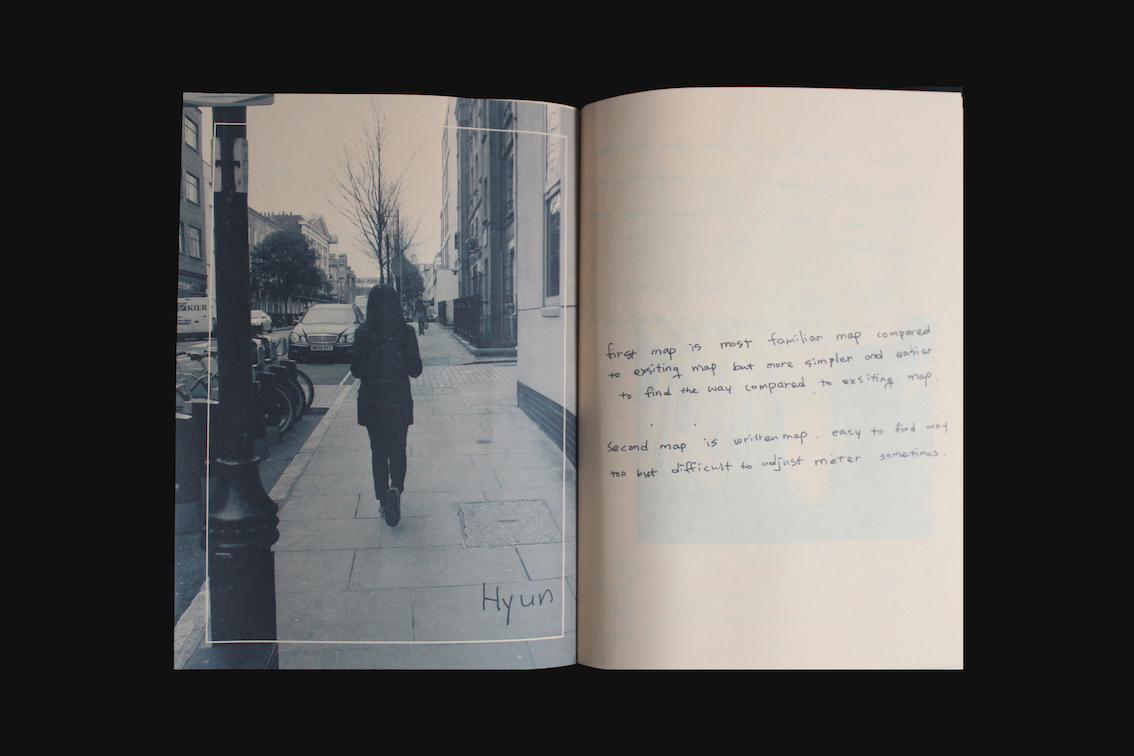 KIER
Hyun
first map is most familiar map compared
to exsiting map but more simpler and easier
to find the way compared to exsiting map.
Second map is written map. easy to find way
too but difficult to adjust meter sometimes.